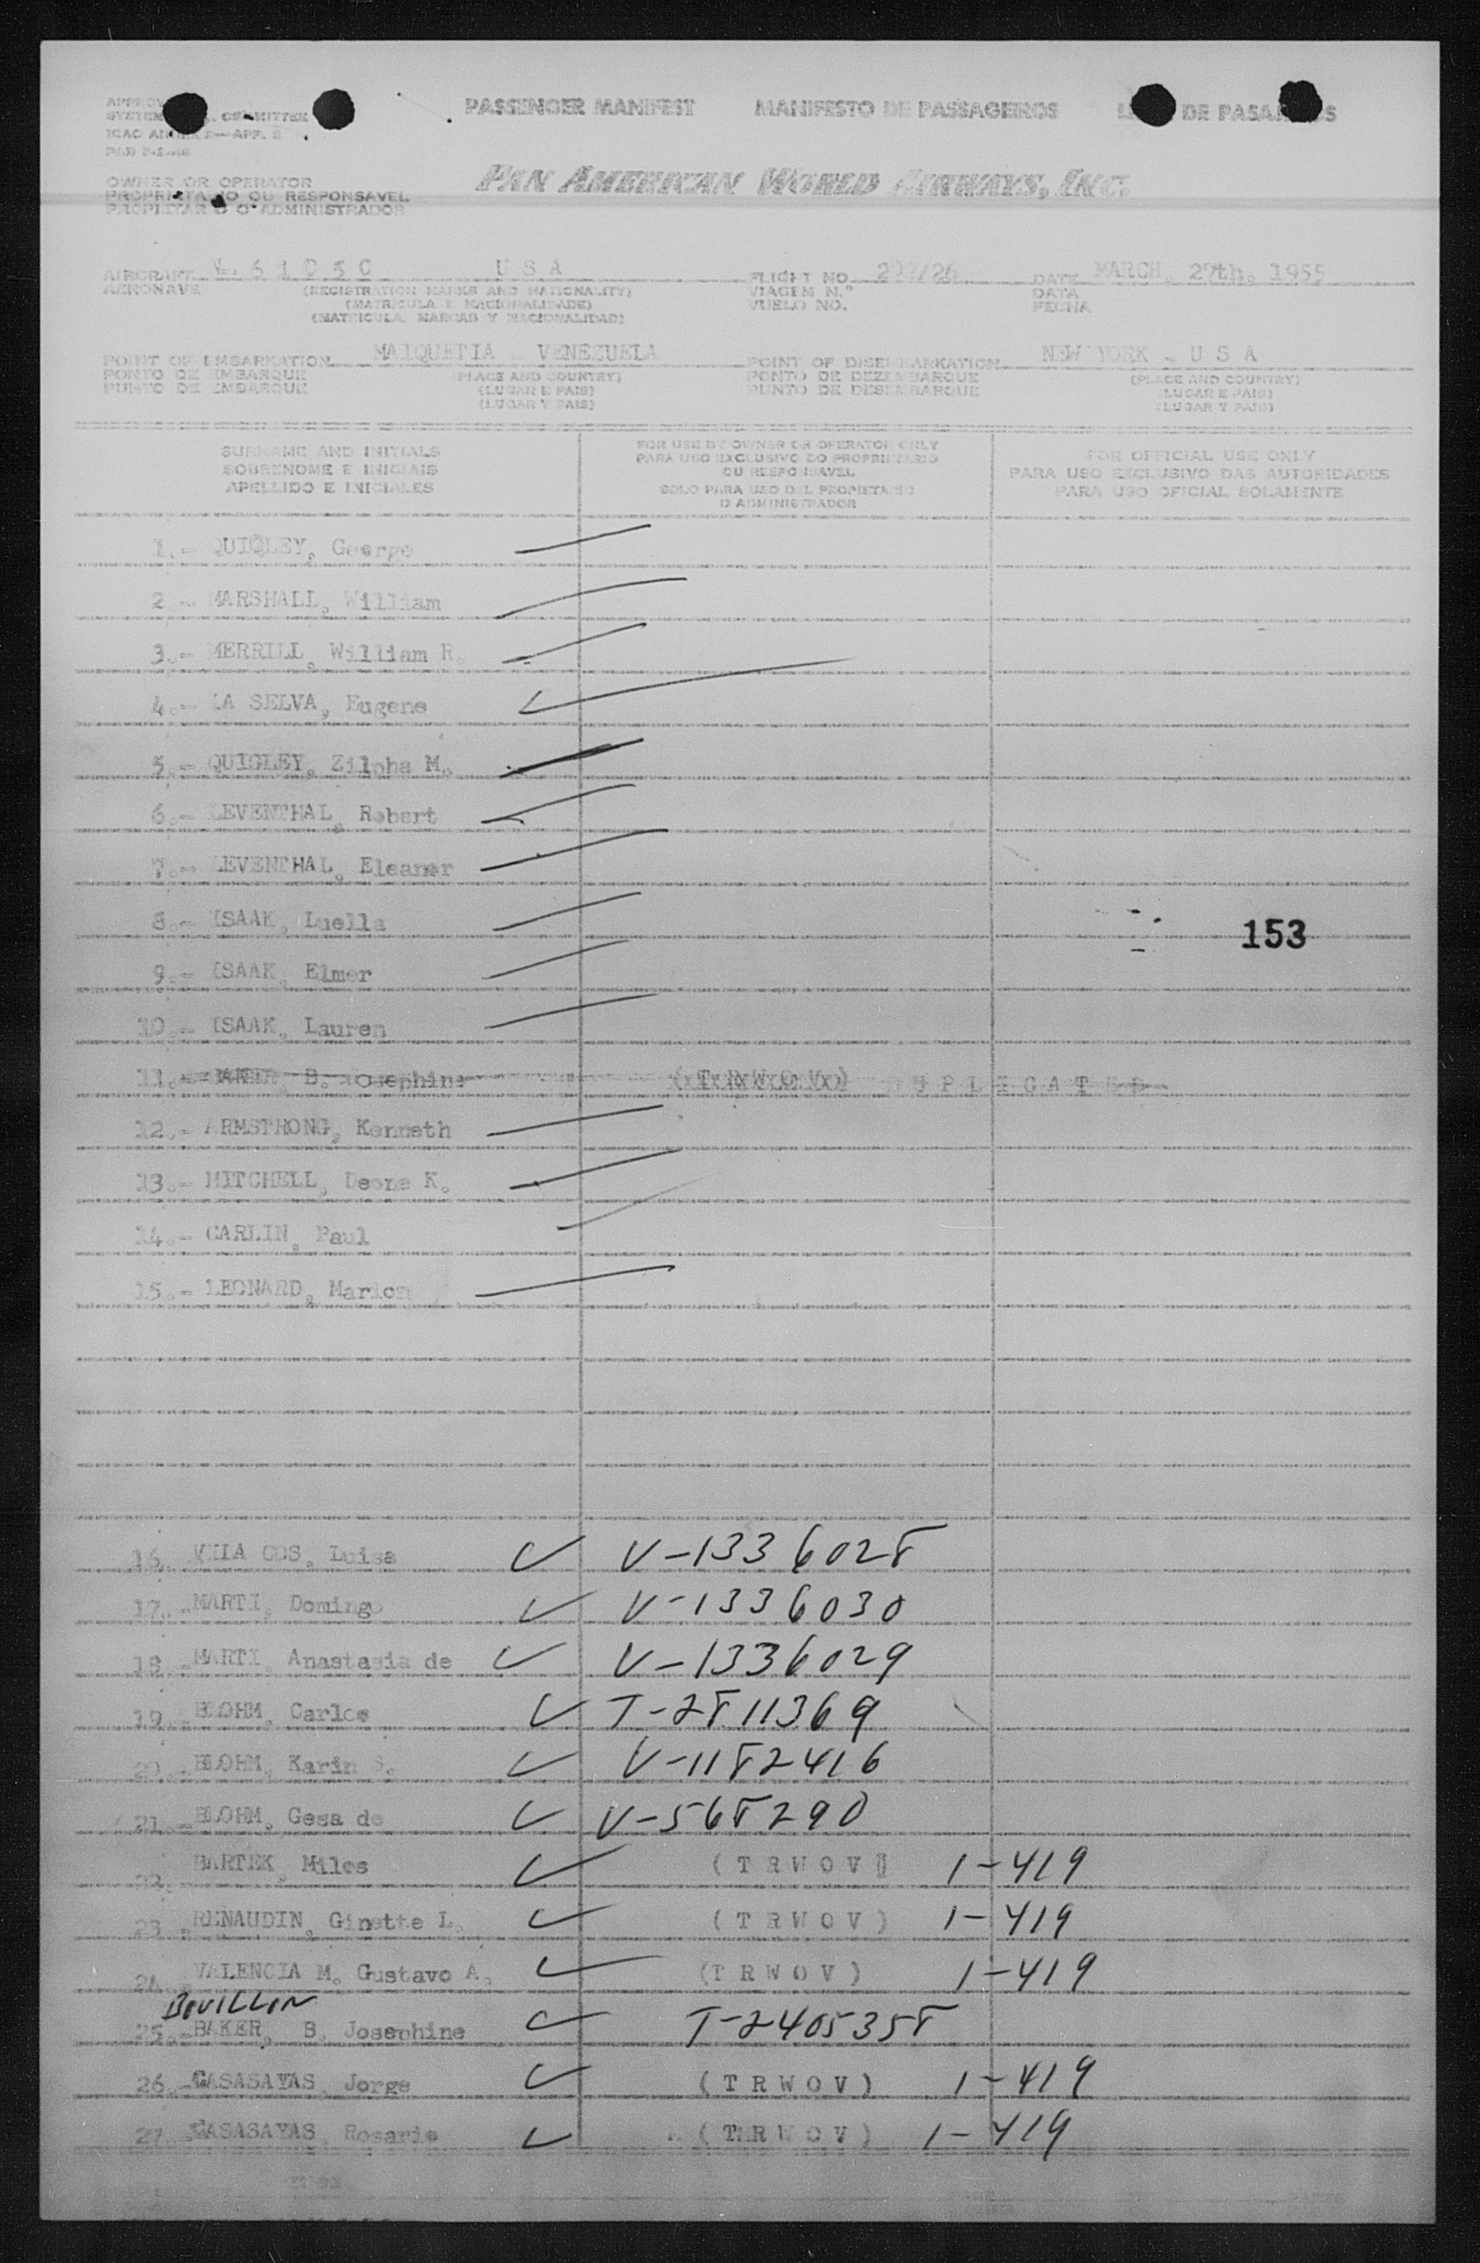 PASSENGER MANIFEST MANIFESTO DE PASSAGEIROS DE PASAJEROS
PAN AMERICAN WORLD AIRWAYS, INC.
OWNER OR OPERATOR
PROPRIETARIO OU RESPONSAVEL
O ADMINISTRADOR
AIRCRAFT U S A FLIGHT NO. DATE MARCH, 27th, 1955
AERONAVE (REGISTRATION MARKS AND NATIONALITY) VIAGEM N.º DATA
(MATRICULA E NACIONALIDADE) VUELO NO. FECHA
(MATRICULA, MARCAS Y NACIONALIDAD)
POINT OF EMBARKATION MAIQUETIA - VENEZUELA POINT OF DISEMBARKATION NEW YORK - U S A
PONTO DE EMBARQUE (PLACE AND COUNTRY) PONTO DE DEZEMBARQUE (PLACE AND COUNTRY)
PUNTO DE EMBARQUE (LUGAR E PAIS) PUNTO DE DESEMBARQUE (LUGAR E PAIS)
(LUGAR Y PAIS) (LUGAR Y PAIS)
SURNAME AND INITIALS FOR USE BY OWNER OR OPERATOR ONLY FOR OFFICIAL USE ONLY
SOBRENOME E INICIAIS PARA USO EXCLUSIVO DO PROPRIETARIO PARA USO EXCLUSIVO DAS AUTORIDADES
OU RESPONSAVEL
APELLIDO E INICIALES SOLO PARA USO DEL PROPIETARIO PARA USO OFICIAL SOLAMENTE
O ADMINISTRADOR
1.- QUIGLEY, George
2.- MARSHALL, William
3.- MERRILL, William R.
4.- LA SELVA, Eugene
5.- QUIGLEY, Zilpha M.
6.- LEVENTHAL, Robert
7.- LEVENTHAL, Eleanor
8.- ISAAK, Luella
153
9.- ISAAK, Elmer
10.- ISAAK, Lauren
11.- BAKER, B. Josephine (T R W O V) D U P L I C A T E D
12.- ARMSTRONG, Kenneth
13.- MITCHELL, Deone K.
14.- CARLIN, Paul
15.- LEONARD, Marion
16.- Luisa V-1336028
17.- MARTI, Domingo V-1336030
18.- MARTI, Anastasia de V-1336029
19.- BLOHM, Carlos T-2811369
20.- BLOHM, Karin S. V-1182416
21.- BLOHM, Gesa de V-568290
22. BARTEK, Miles (T R W O V) 1-419
23.- RENAUDIN, Ginette L. (T R W O V) 1-419
24.- VALENCIA M. Gustavo A. (T R W O V) 1-419
BOUILLON
25.- BAKER, B. Josephine T-2405358
26.- CASASAYAS, Jorge (T R W O V) 1-419
27.- CASASAYAS, Rosario (T R W O V) 1-419